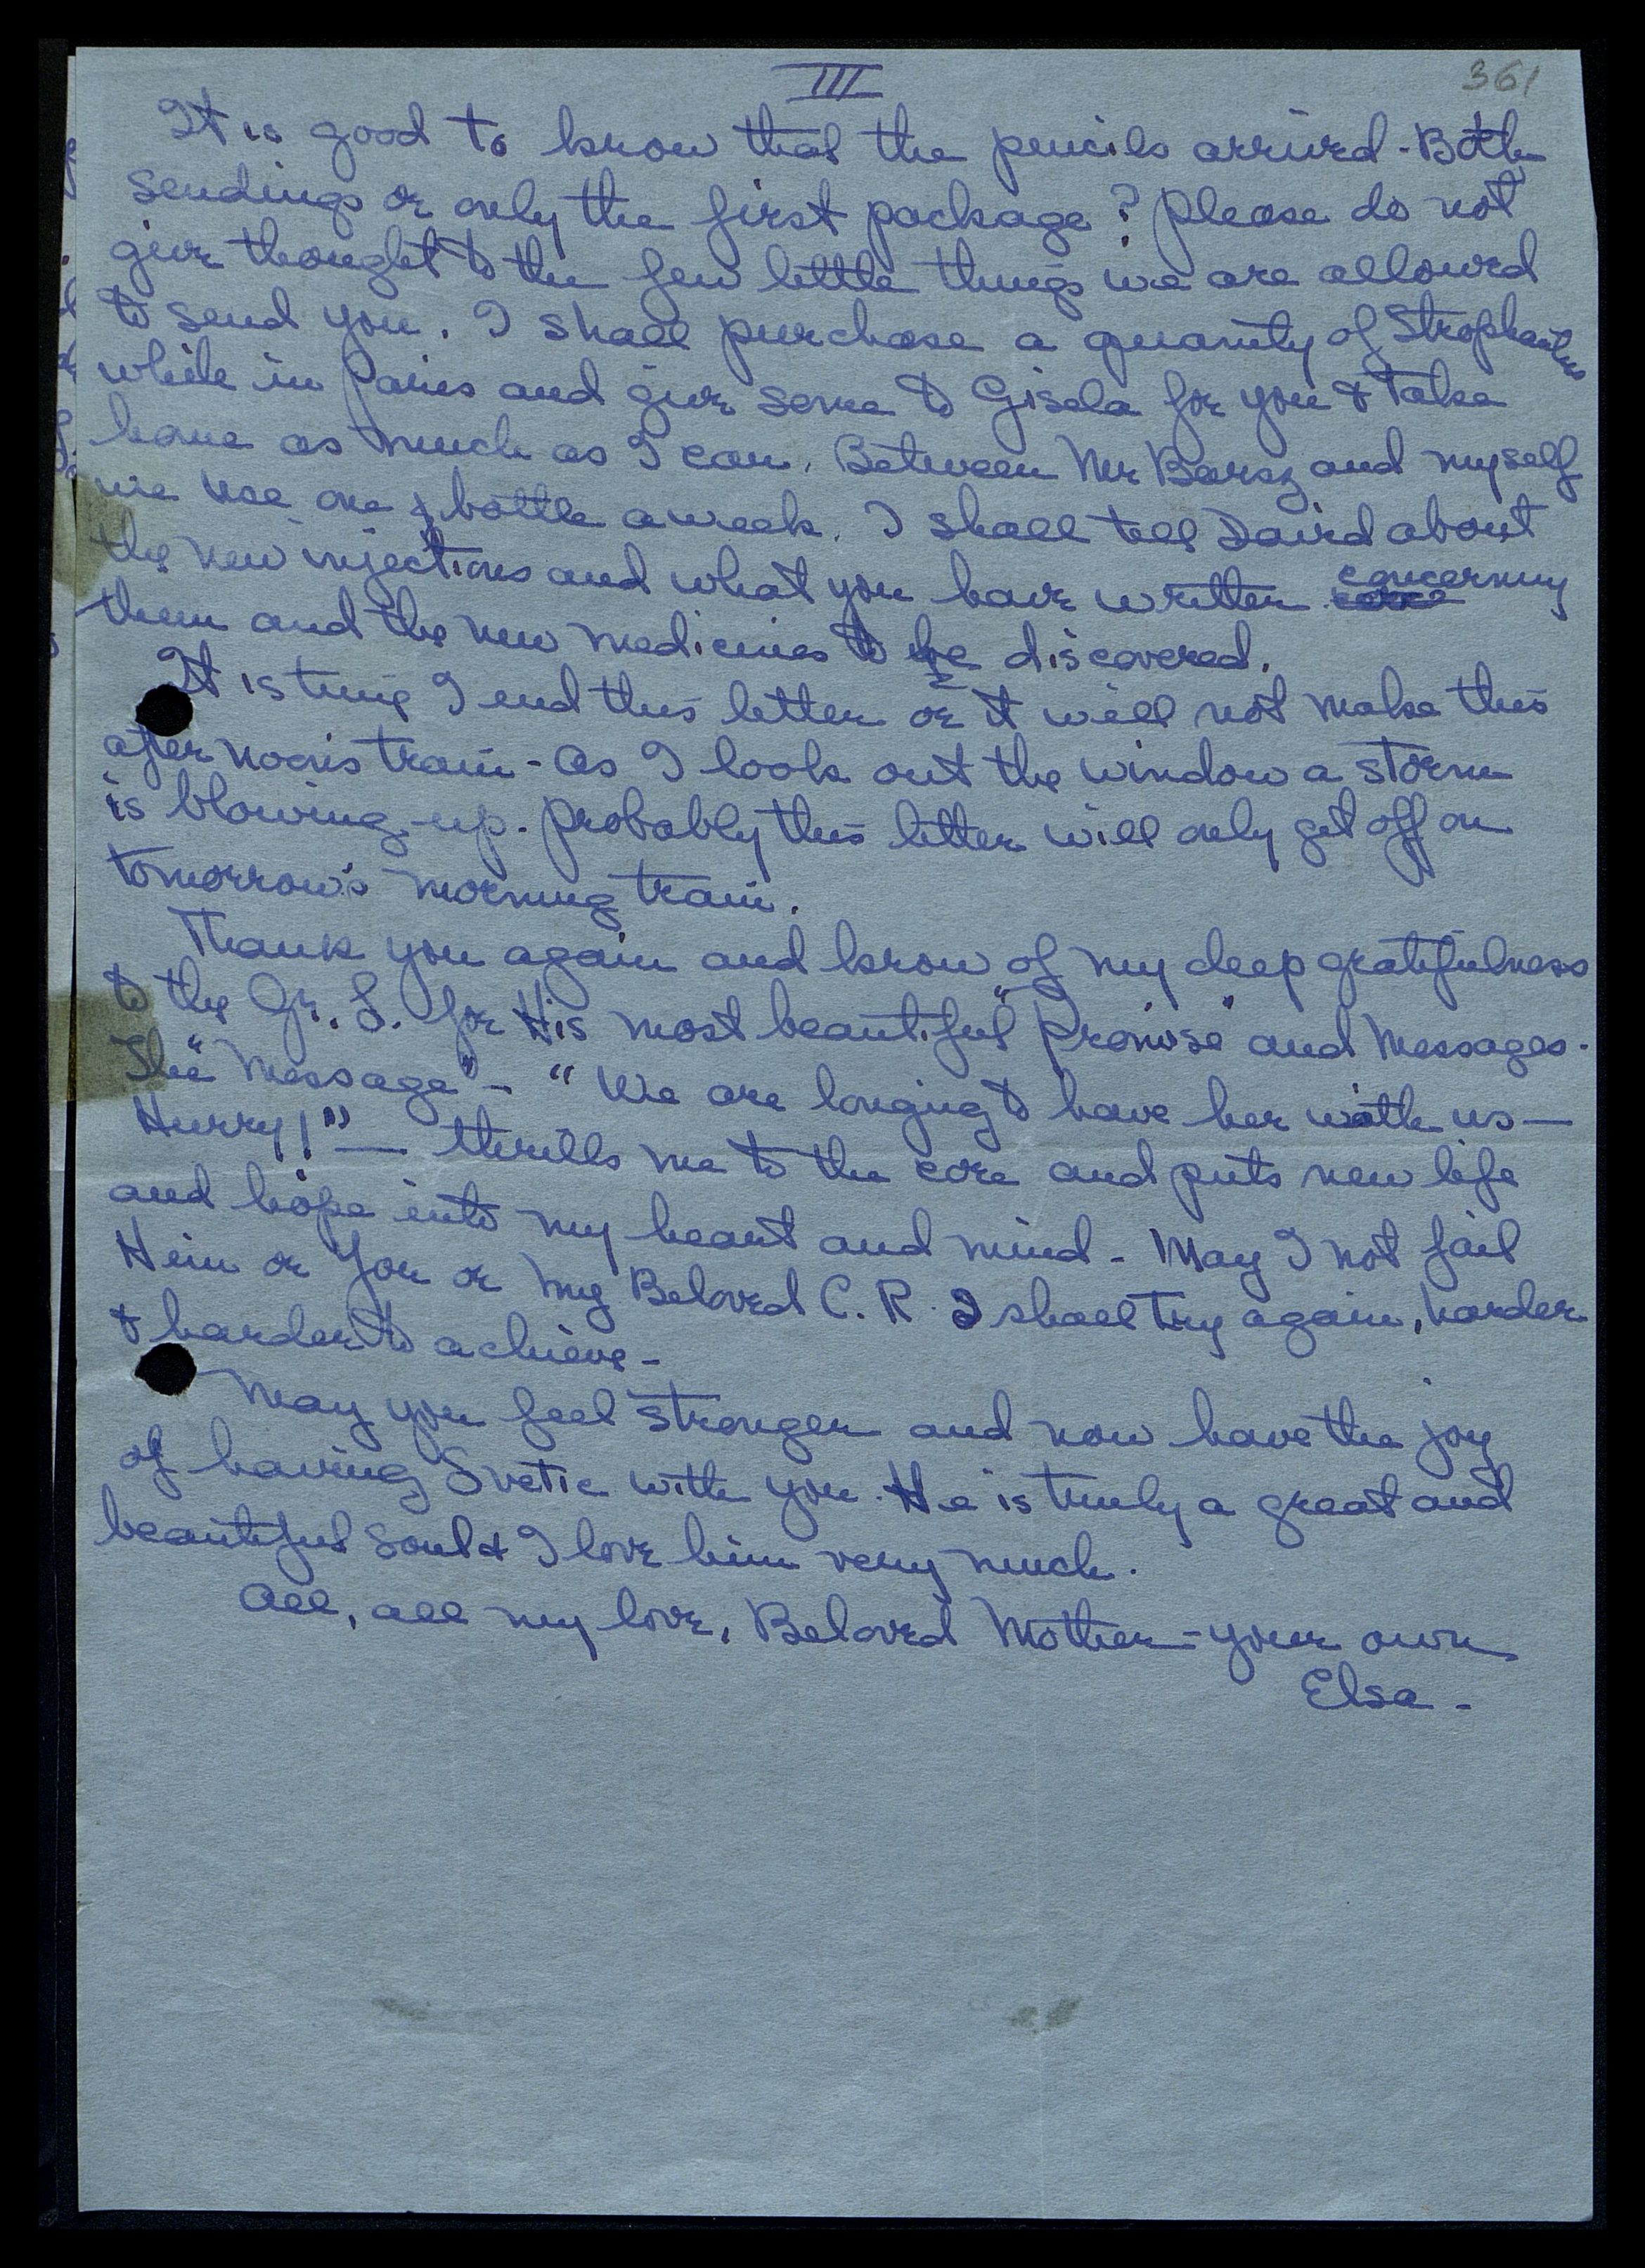 III
361
It is good to know that the pencils arrived - Both
sendings or only the first package? Please do not
give thought to the few little things we are allowed
to send you. I shall purchase a quanity of
while in Paris and give some to Gisela for you & take
home as much as I can. Between Mr and myself
we use one bottle a week. I shall tell David about
the new injections and what you have written concerning
them and the new medicines to be discovered.
It is time I end this letter or it will not make this
afternoons train - As I look out the window a storm
is blowing-up. Probably this letter will only get off on
tomorrow's morning train.
Thank you again and know of my deep gratefulness
to the Gr. L. for His most beautiful "Promise" and Messages.
The "Message" - "We are longing to have her with us —
Hurry!" — thrills me to the core and puts new life
and hope into my heart and mind - May I not fail
Him or You or my Beloved C. R. I shall try again, harder
& harder to achieve -
May you feel stronger and now have the joy
of having Svetic with you. He is truly a great and
beautiful soul & I love him very much.
All, all my love, Beloved Mother - your own
Elsa -